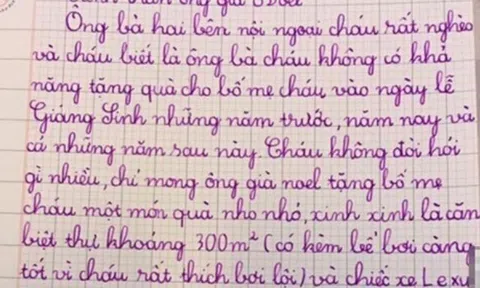 ông già
Ông bà hai bên nội ngoại cháu rất nghèo
và cháu biết là ông bà cháu không có khả
năng tặng quà cho bố mẹ cháu vào ngày lễ
Giáng Sinh những năm trước, năm nay và
cả những năm sau này. Cháu không đòi hỏi
gì nhiều, chỉ mong ông già noel tặng bố mẹ
cháu một món quà nho nhỏ, xinh xinh là căn
biệt thự khoảng 300m² (có kèm bể bơi càng
tốt vì cháu rất thích bơi lội) và chiếc xe Lexu